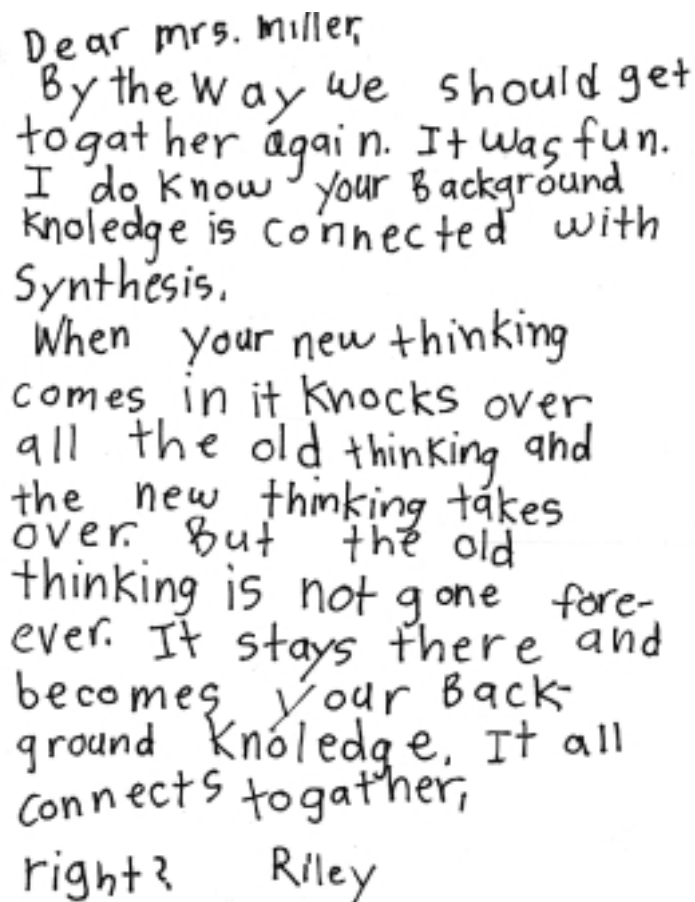 Dear mrs. miller,
By the way we should get
togather again. It was fun.
I do know your Background
knoledge is connected with
Synthesis.
When your new thinking
comes in it knocks over
all the old thinking and
the new thinking takes
over. But the old
thinking is not gone fore-
ever. It stays there and
becomes your Back-
ground knoledge. It all
connects togather,
right? Riley